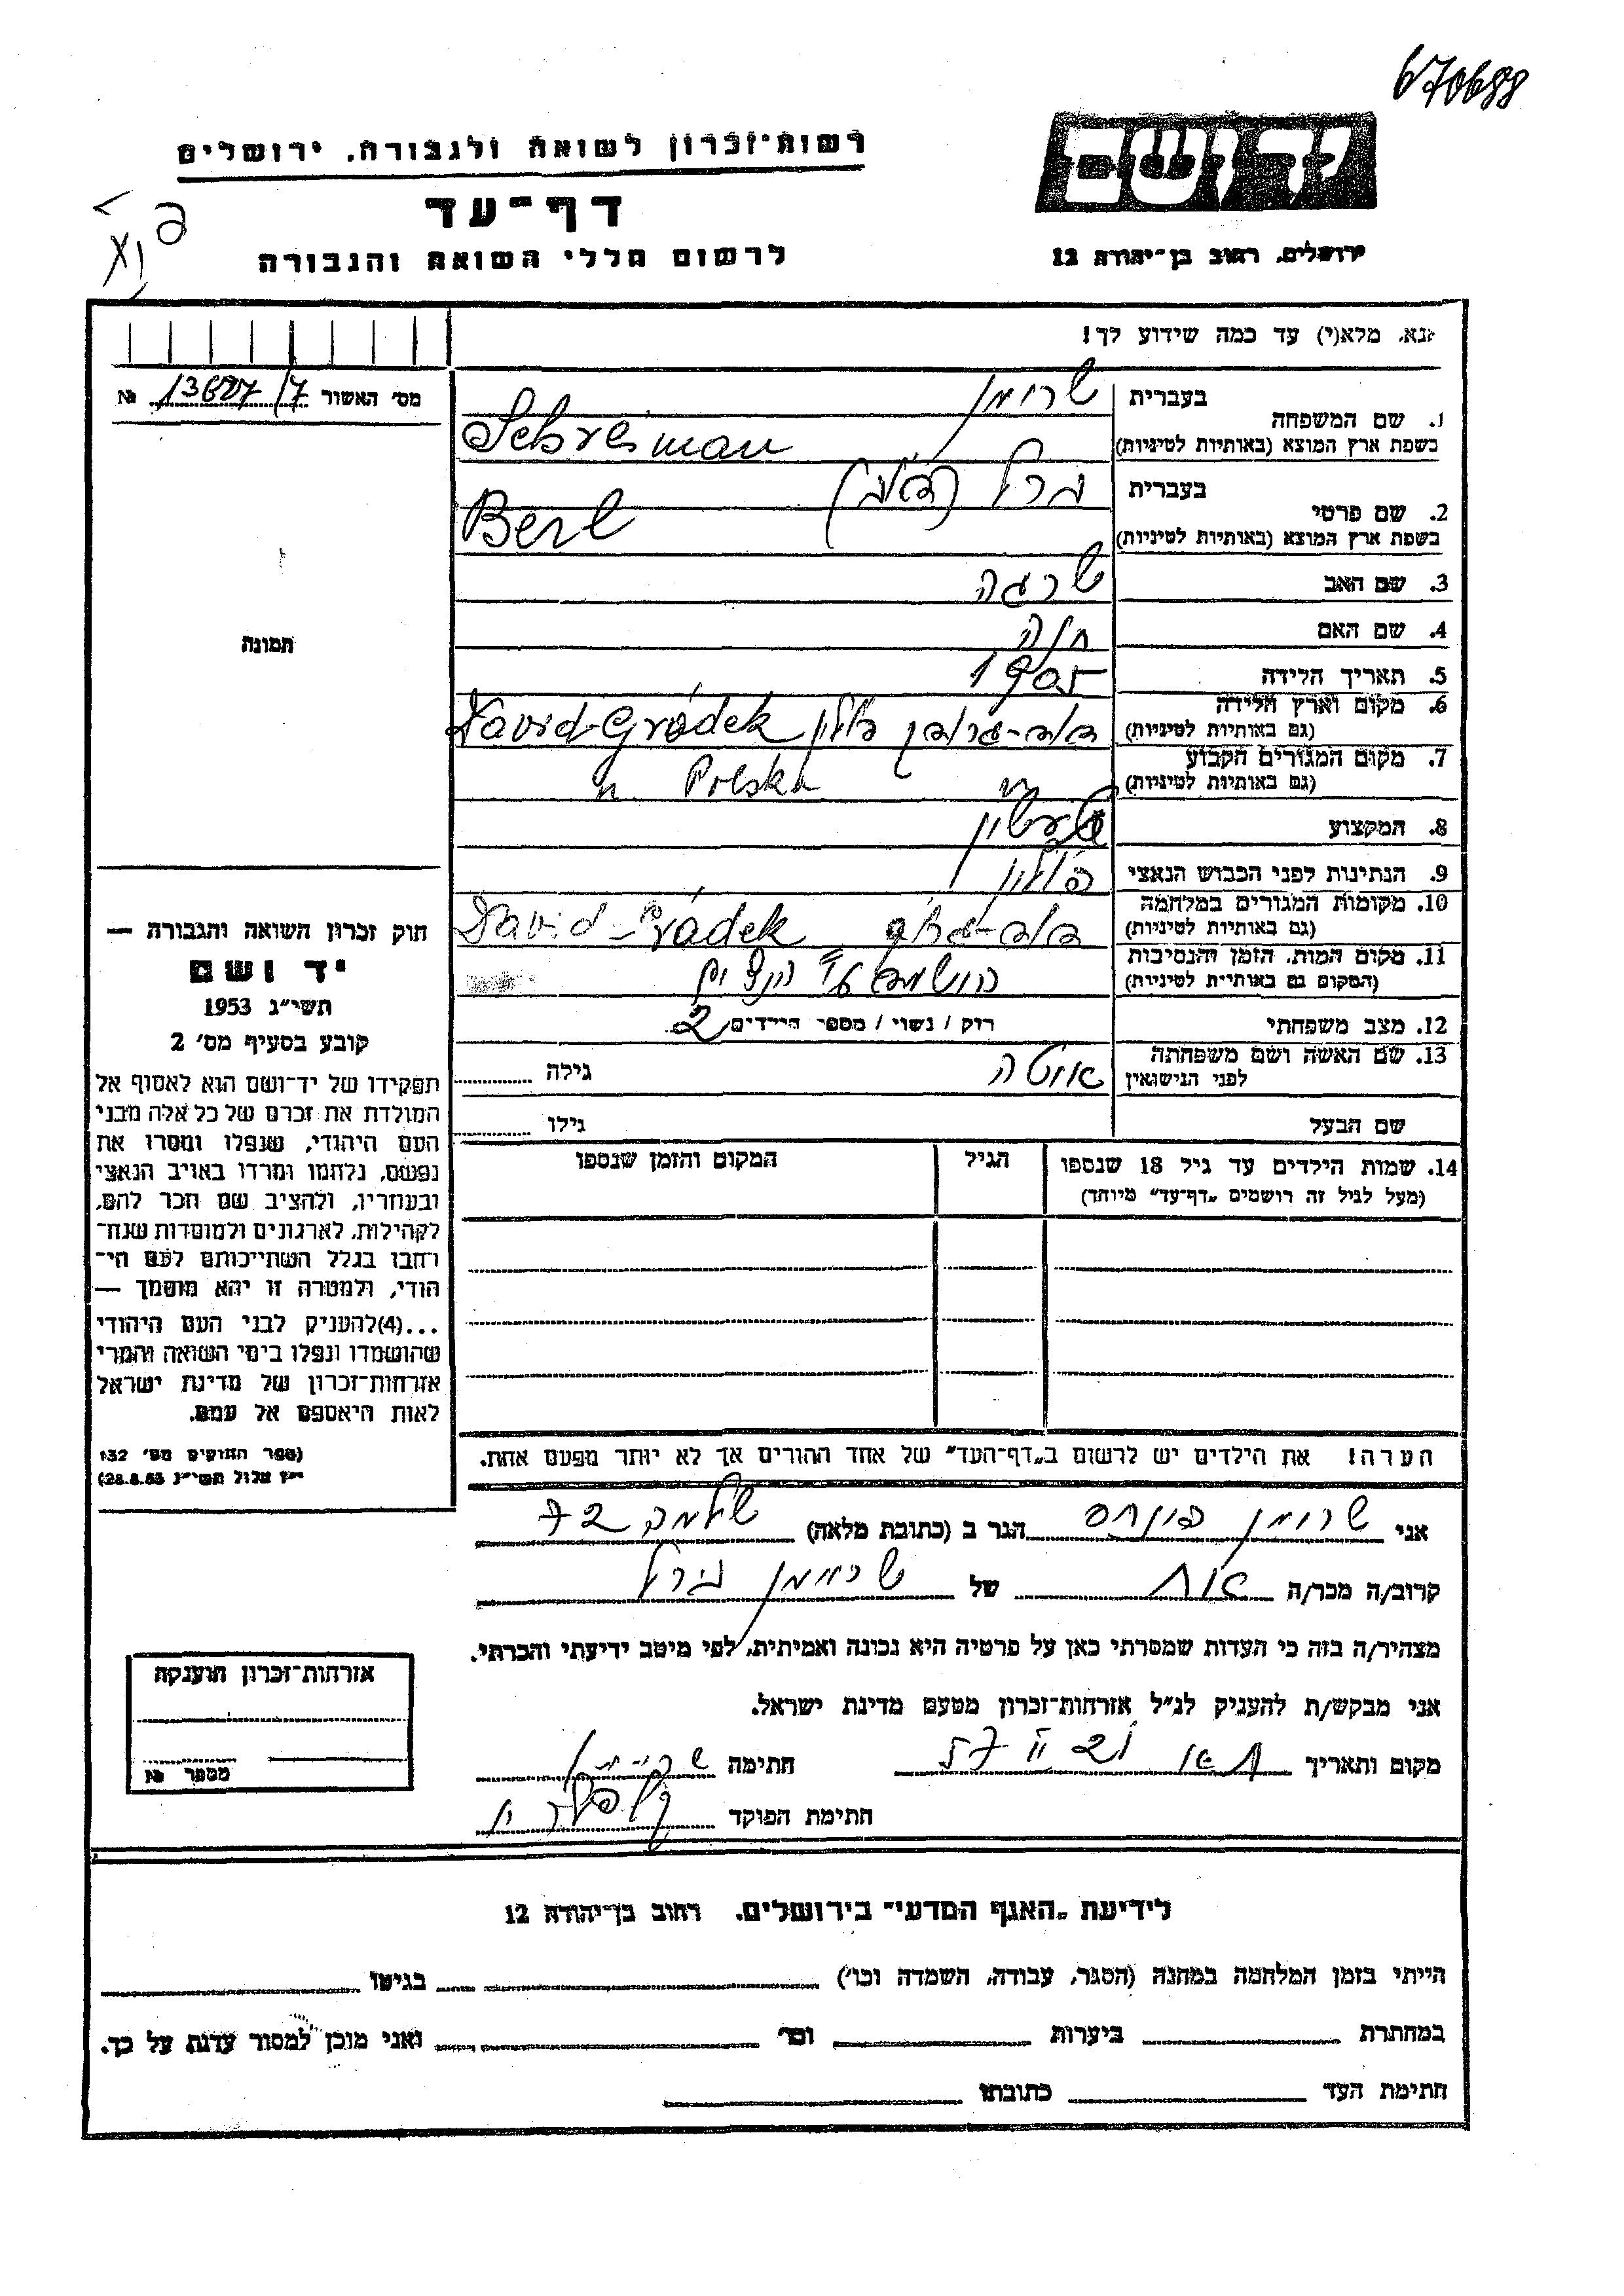 670688
יד ושם
רשות־זכרון לשואה ולגבורה, ירושלים
דף־עד
לרשום חללי השואה והגבורה
ירושלים, רחוב בן־יהודה 12
נא, מלא(י) עד כמה שידוע לך!
מס' האשור 13627/7 №
1. שם המשפחה
בעברית שרימן
בשפת ארץ המוצא (באותיות לטיניות) Schreiman
2. שם פרטי
בעברית ברל
בשפת ארץ המוצא (באותיות לטיניות) Berl
3. שם האב שרגה
4. שם האם חנה
5. תאריך הלידה 1905
6. מקום וארץ הלידה (גם באותיות לטיניות) פולין David-Gródek
7. מקום המגורים הקבוע (גם באותיות לטיניות) " Polska "
8. המקצוע
9. הנתינות לפני הכבוש הנאצי פולין
10. מקומות המגורים במלחמה (גם באותיות לטיניות) David-Gródek
11. מקום המות, הזמן והנסיבות (המקום גם באותיות לטיניות) הושמד ע"י הנצים
12. מצב משפחתי רווק / נשוי / מספר הילדים 2
13. שם האשה ושם משפחתה לפני הנישואין גילה
שם הבעל גילו
14. שמות הילדים עד גיל 18 שנספו הגיל המקום והזמן שנספו
(מעל לגיל זה רושמים „דף־עד" מיוחד)
הערה! את הילדים יש לרשום ב„דף־העד" של אחד ההורים אך לא יותר מפעם אחת.
תמונה
חוק זכרון השואה והגבורה —
יד ושם
תשי"ג 1953
קובע בסעיף מס' 2
תפקידו של יד־ושם הוא לאסוף אל
המולדת את זכרם של כל אלה מבני
העם היהודי, שנפלו ומסרו את
נפשם, נלחמו ומרדו באויב הנאצי
ובעוזריו, ולהציב שם וזכר להם,
לקהילות, לארגונים ולמוסדות שנח־
רבו בגלל השתייכותם לעם הי־
הודי, ולמטרה זו יהא מוסמך —
...(4) להעניק לבני העם היהודי
שהושמדו ונפלו בימי השואה והמרי
אזרחות־זכרון של מדינת ישראל
לאות היאספם אל עמם.
(ספר החוקים מס' 132
י"ז אלול תשי"ג 28.8.53)
אני שרימן פינחס הגר ב (כתובת מלאה)
קרוב/ה מכר/ה אח של שריימן ברל
מצהיר/ה בזה כי העדות שמסרתי כאן על פרטיה היא נכונה ואמיתית, לפי מיטב ידיעתי והכרתי.
אני מבקש/ת להעניק לנ"ל אזרחות־זכרון מטעם מדינת ישראל.
מקום ותאריך חתימה
חתימת הפוקד
אזרחות־זכרון הוענקה
מספר №
לידיעת „האגף המדעי" בירושלים, רחוב בן־יהודה 12
הייתי בזמן המלחמה במחנה (הסגר, עבודה, השמדה וכו') בגיטו
במחתרת ביערות וכו' ואני מוכן למסור עדות על כך.
חתימת העד כתובתו